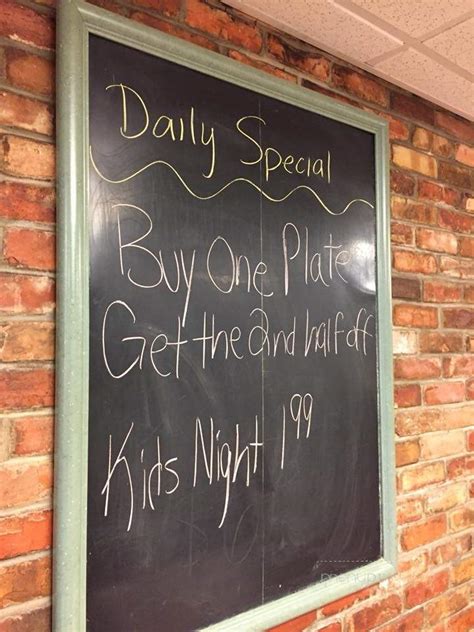 Daily Special
Buy One Plate
Get the 2nd half off
Kids Night 1.99